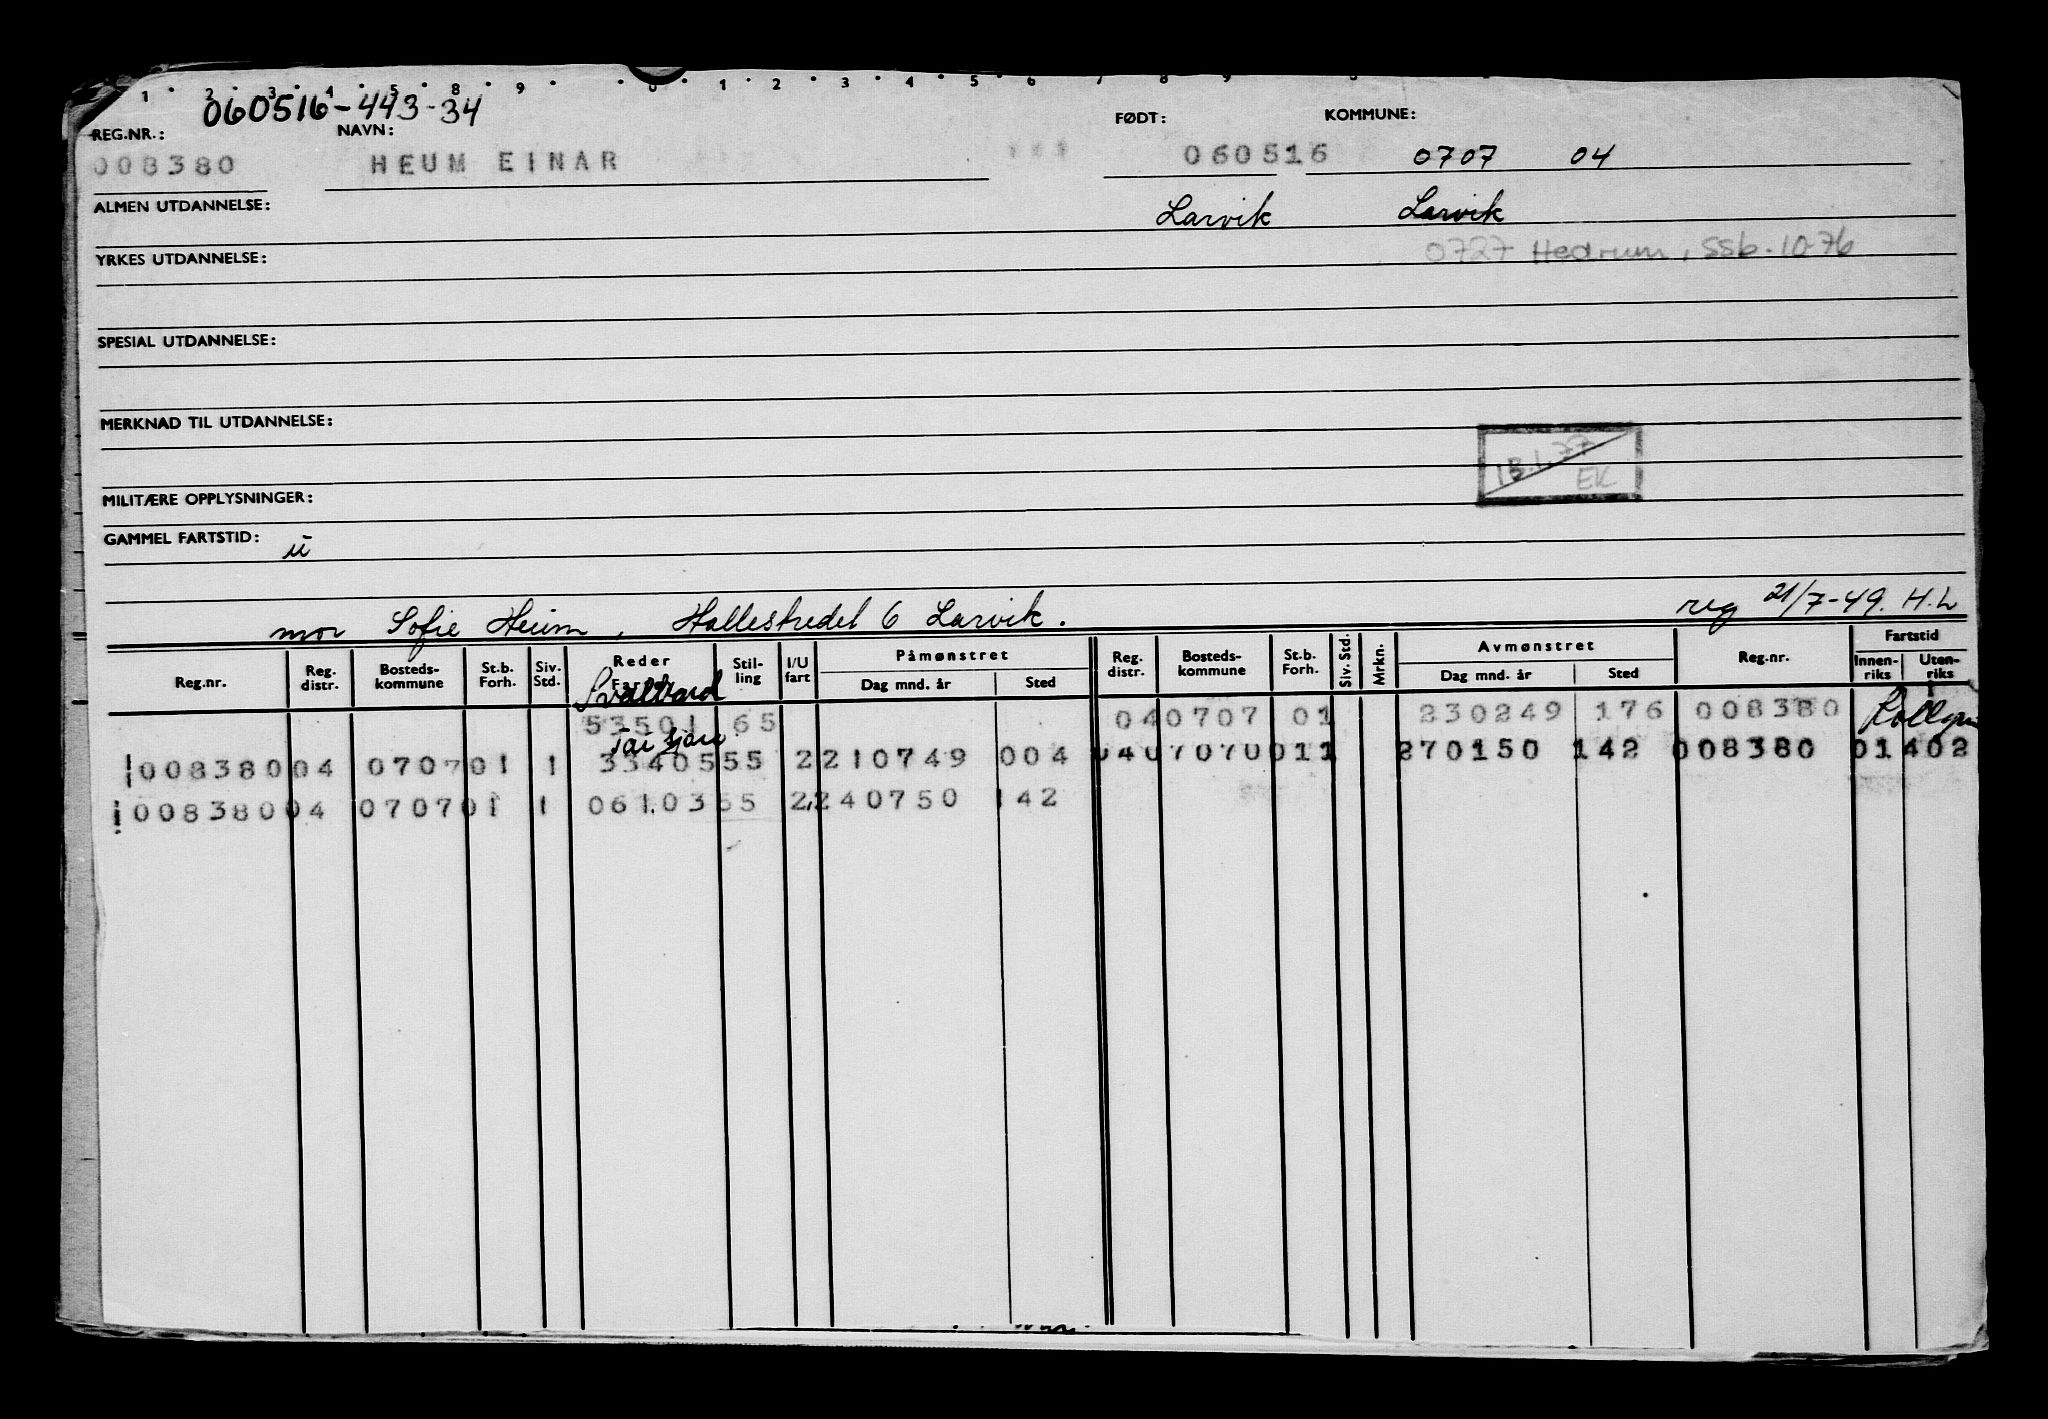 1 2 3 4 5 8 9 0 1 2 3 4 5 6 7 8 9
060516-443-34
REG.NR.: NAVN: FØDT: KOMMUNE:
008380 HEUM EINAR 060516 0707 04
ALMEN UTDANNELSE: Larvik Larvik
YRKES UTDANNELSE: 0727 Hedrum, SSb. 10-76
SPESIAL UTDANNELSE:
MERKNAD TIL UTDANNELSE:
13.1.77
EK
MILITÆRE OPPLYSNINGER:
GAMMEL FARTSTID: ū
reg 21/7-49. H.L
mor Sofie Heum, Hallestredet 6 Larvik.
Reg.nr. Reg. distr. Bosteds-kommune St.b. Forh. Siv. Std. Reder Stil-ling I/U fart Påmønstret Dag mnd. år Sted Reg. distr. Bosteds-kommune St.b. Forh. Siv. Std. Mrkn. Avmønstret Dag mnd. år Sted Reg.nr. Fartstid Innen-riks Uten-riks
Svalbard
53501 65 040707 01 230249 176 008380
Tai Shan
008380 04 0707 01 1 33405 55 2 210749 004 04 0707 0011 270150 142 008380 01402
008380 04 0707 01 1 06103 55 2 240750 142